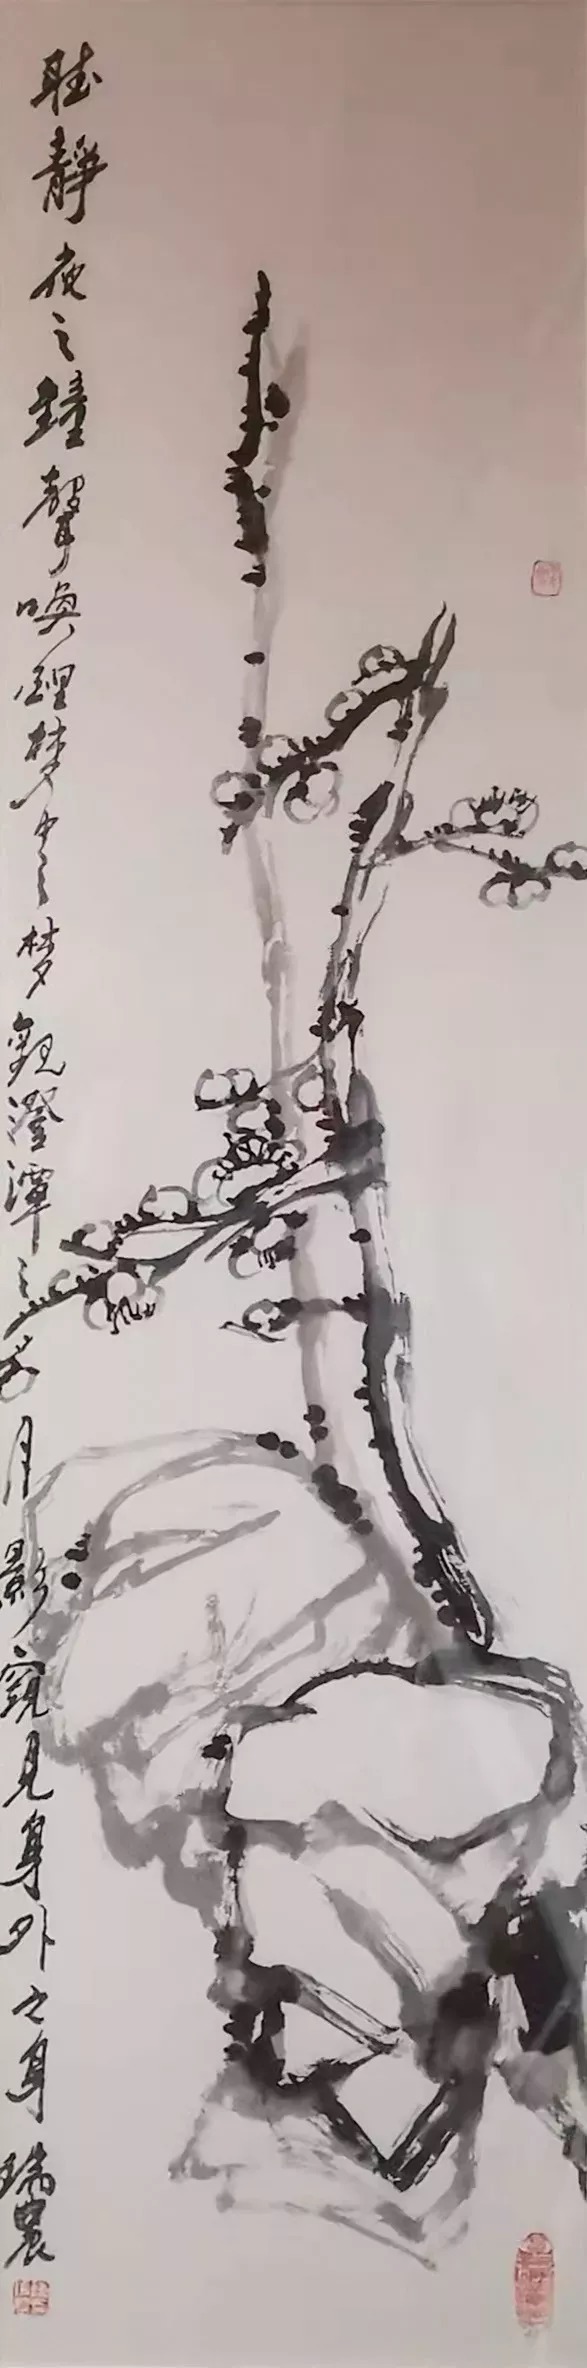 聽靜夜之鐘聲喚醒梦中之梦觀澄潭之月影窺見身外之身 瑞農